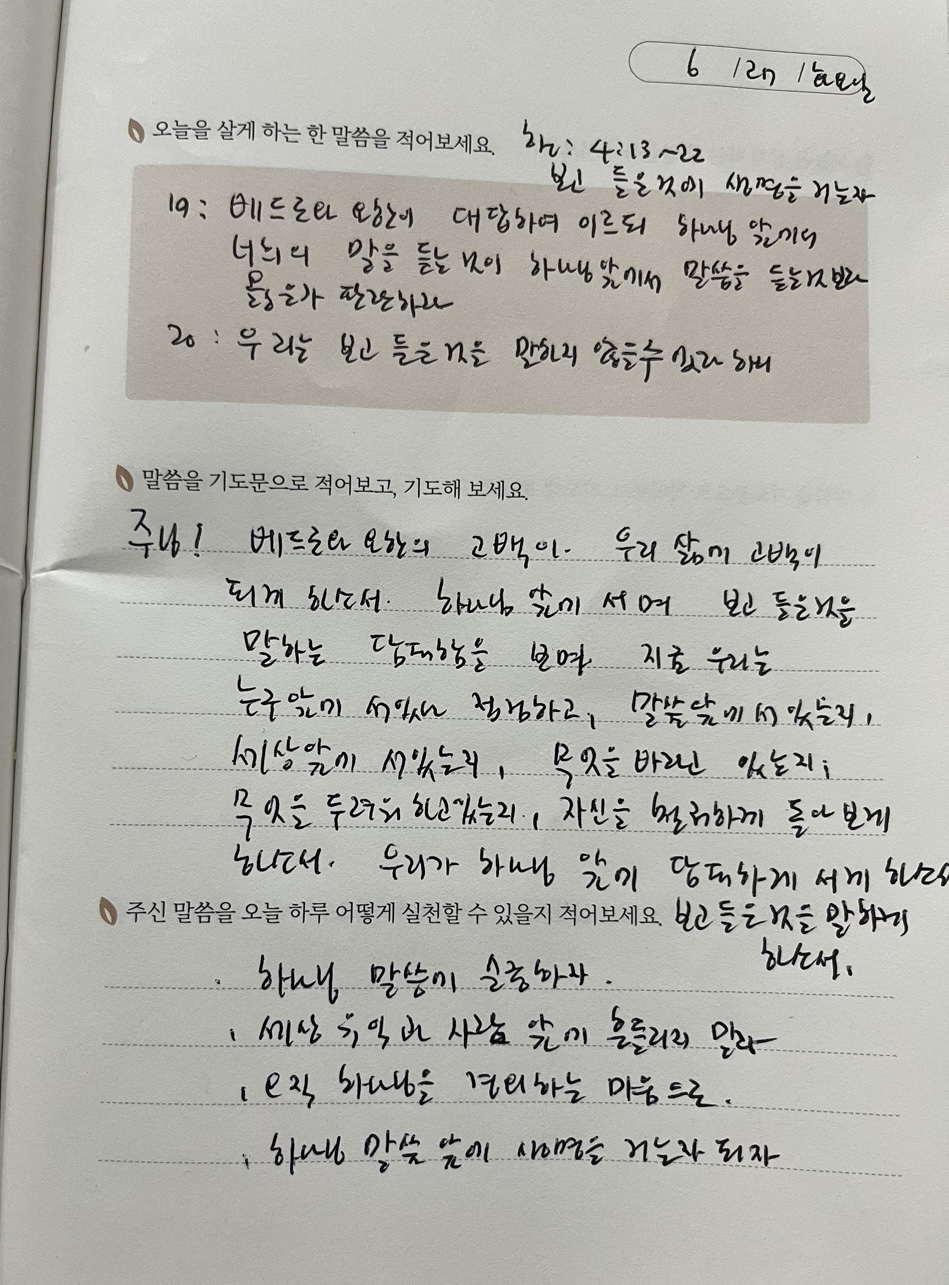 6 / 27 / 금요일
오늘을 살게 하는 한 말씀을 적어보세요.
행: 4:13~22
보고 들은것에 생명을 거는자
19: 베드로와 요한이 대답하여 이르되 하나님 앞에서
너희의 말을 듣는 것이 하나님 앞에서 말씀을 듣는것보다
옳은가 판단하라
20: 우리는 보고 들은것을 말하지 않을수 없다 하니
말씀을 기도문으로 적어보고, 기도해 보세요.
주님! 베드로와 요한의 고백이. 우리 삶에 고백이
되게 하소서. 하나님 앞에 서며 보고 들은것을
말하는 담대함을 보며 지금 우리는
누구앞에 서있나 점검하고, 말씀앞에 서있는지,
세상앞에 서있는지, 무엇을 바라고 있는지,
무엇을 두려워 하고있는지, 자신을 철저하게 돌아보게
하소서. 우리가 하나님 앞에 담대하게 서게 하소서
주신 말씀을 오늘 하루 어떻게 실천할 수 있을지 적어보세요.
보고 들은것을 말하게
하소서.
. 하나님 말씀에 순종하자.
. 세상 유익과 사람 앞에 흔들리지 말라
. 오직 하나님을 경외하는 마음으로.
. 하나님 말씀 앞에 생명을 거는자 되자